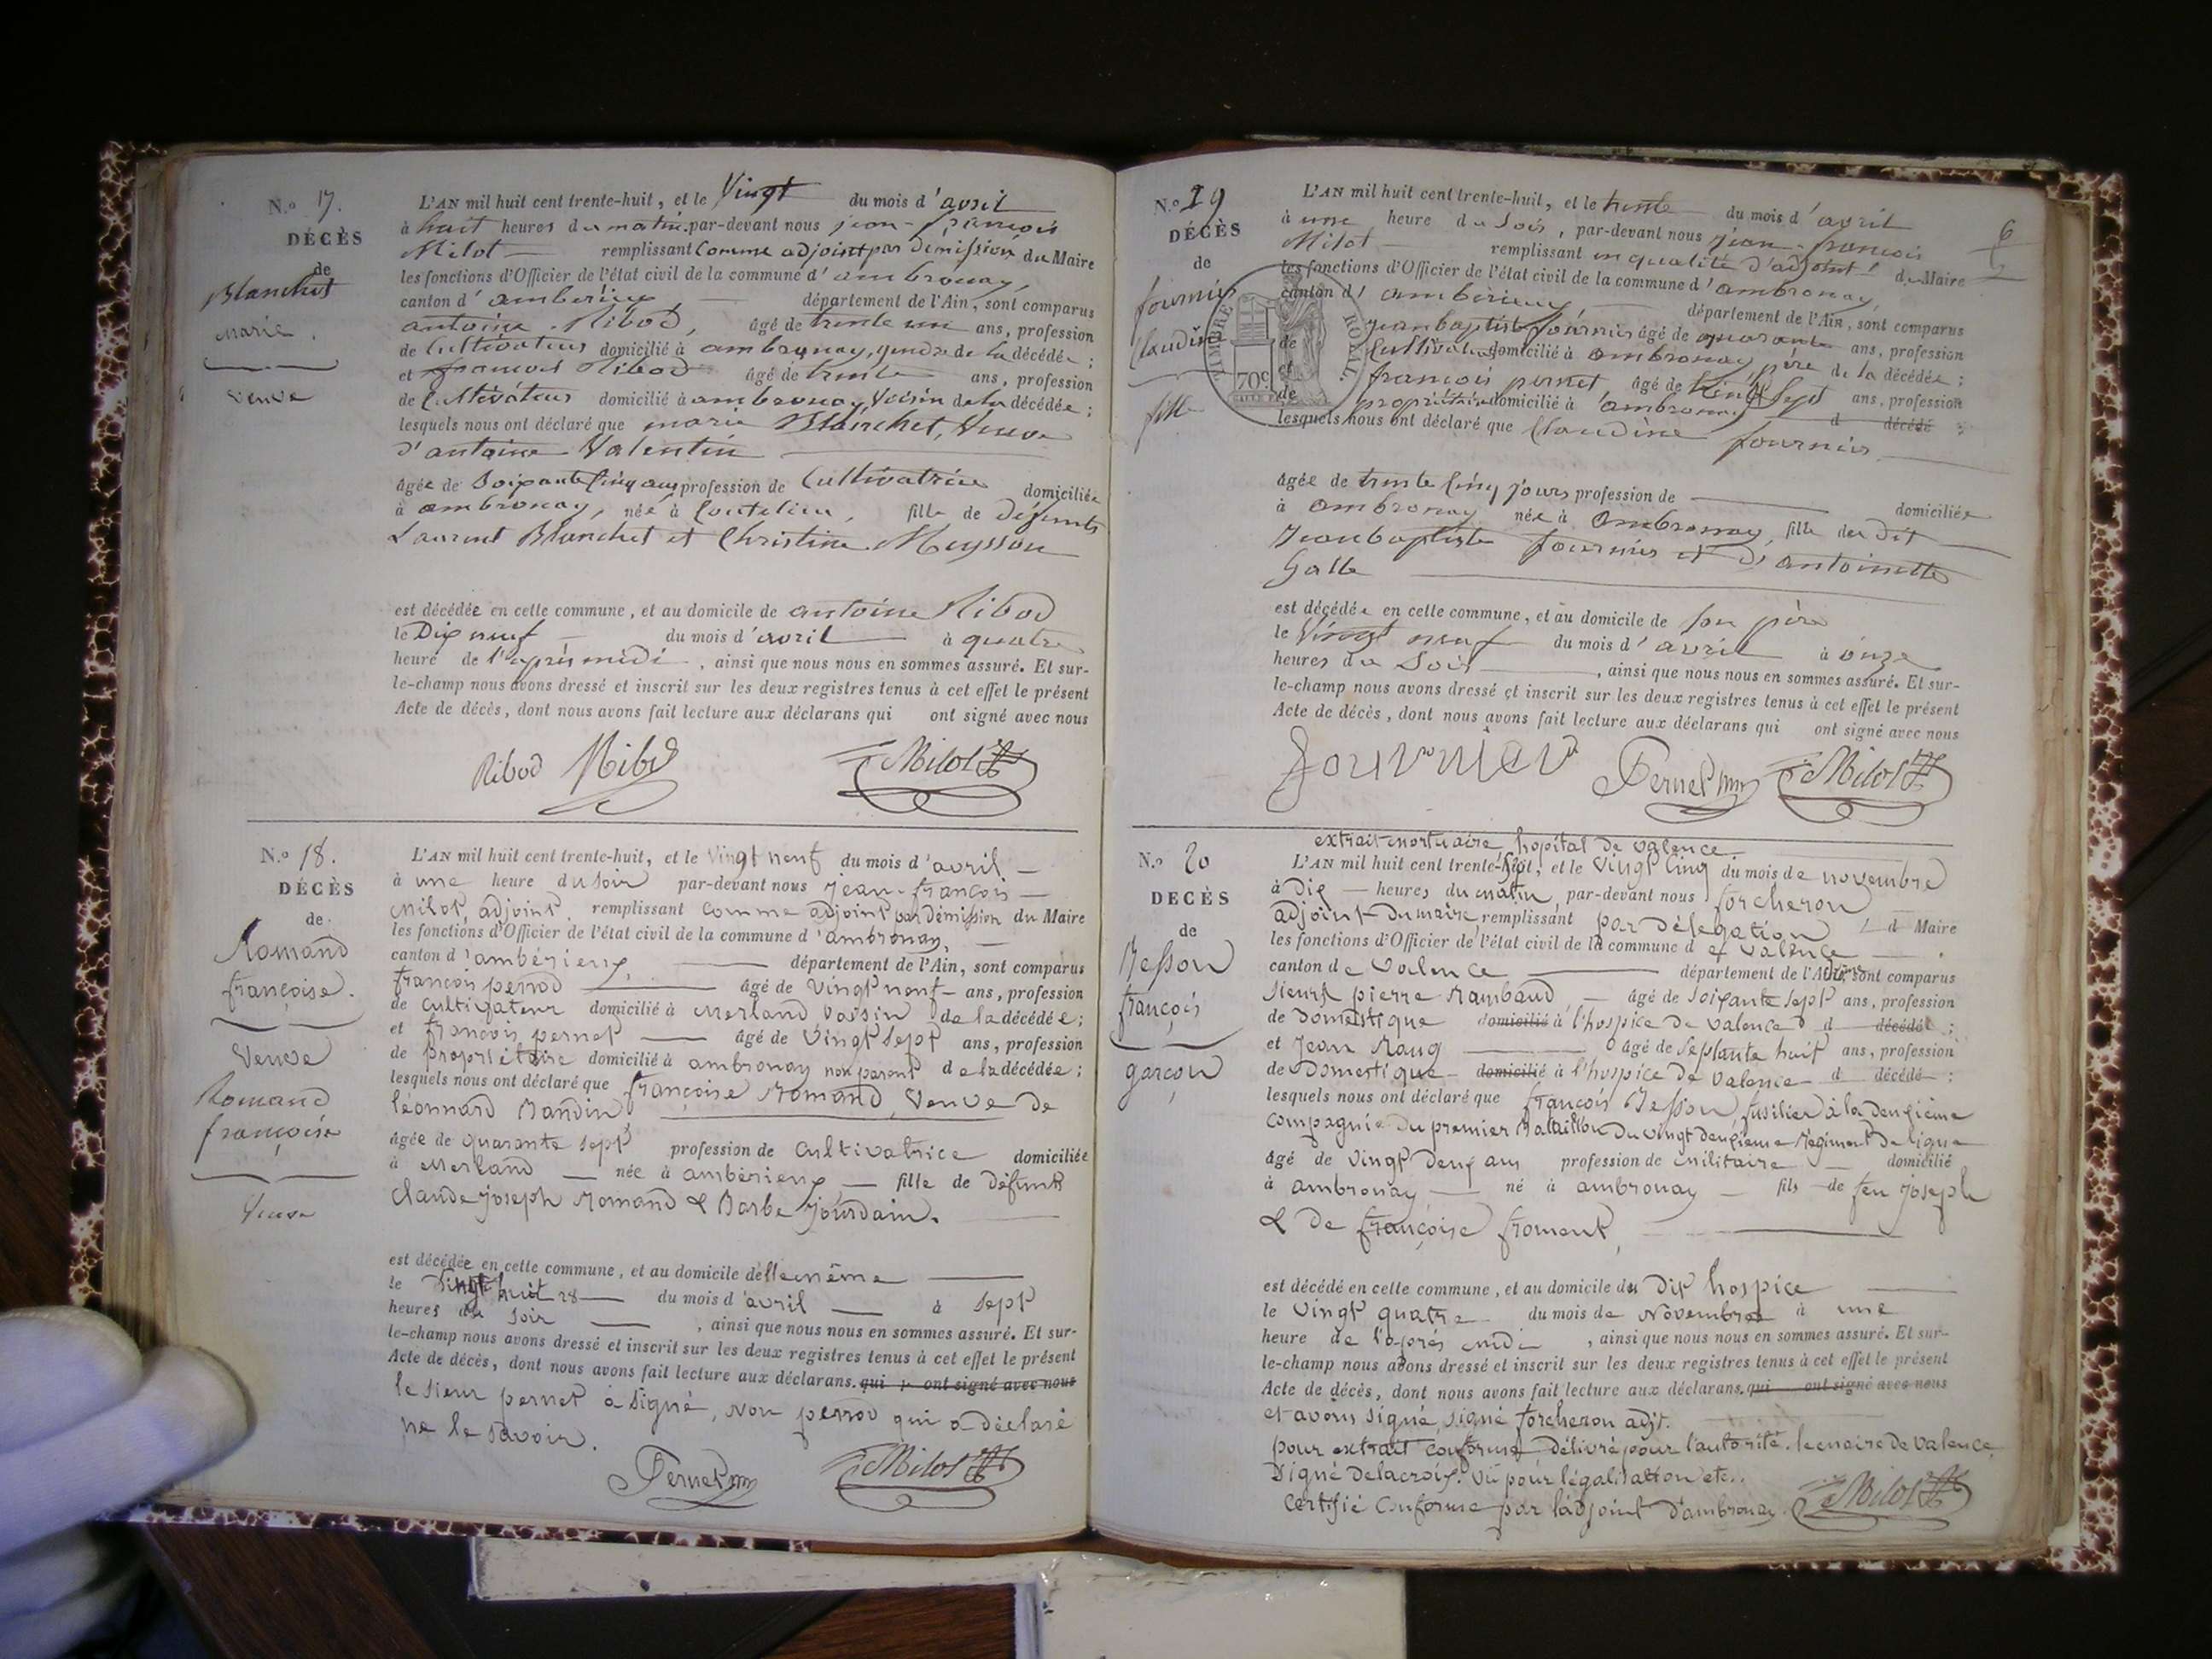 N.° 17.
DÉCÈS
de
Blanchet
Marie.
Veuve
L'AN mil huit cent trente-huit, et le Vingt du mois d'avril
à huit heures du matin, par-devant nous jean-françois
Milot remplissant comme adjoint par démission du Maire
les fonctions d'Officier de l'état civil de la commune d'ambronay,
canton d'ambérieux, département de l'Ain, sont comparus
antoine Ribod, âgé de trente un ans, profession
de Cultivateur domicilié à ambronay, gendre de la décédée;
et françois Ribod âgé de trente ans, profession
de Cultivateur domicilié à ambronay, Voisin de la décédée;
lesquels nous ont déclaré que marie Blanchet, Veuve
d'antoine Valentin
âgée de Soixante Cinq ans profession de Cultivatrice domiciliée
à ambronay, née à Coutelieu, fille de défunts
Laurent Blanchet et Christine Meysson
est décédée en cette commune, et au domicile de antoine Ribod
le Dix neuf du mois d'avril à quatre
heure de l'après midi, ainsi que nous nous en sommes assuré. Et sur-
le-champ nous avons dressé et inscrit sur les deux registres tenus à cet effet le présent
Acte de décès, dont nous avons fait lecture aux déclarans qui ont signé avec nous
Ribod Ribod Milot
N.° 18.
DÉCÈS
de
Romand
françoise.
Veuve
Romand
françoise
Veuve
L'AN mil huit cent trente-huit, et le vingt neuf du mois d'avril
à une heure du soir par-devant nous jean-françois
Milot, adjoint, remplissant comme adjoint par démission du Maire
les fonctions d'Officier de l'état civil de la commune d'ambronay,
canton d'ambérieux, département de l'Ain, sont comparus
françois perrod âgé de vingt neuf ans, profession
de cultivateur domicilié à Merland voisin de la décédée;
et françois pernet âgé de vingt sept ans, profession
de propriétaire domicilié à ambronay non parent de la décédée;
lesquels nous ont déclaré que françoise Romand, Veuve de
léonnard Bandin
âgée de quarante sept profession de Cultivatrice domiciliée
à Merland née à ambérieux fille de défunt
claude joseph Romand & Barbe jourdain.
est décédée en cette commune, et au domicile d'elle même
le Vingt huit 28 du mois d'avril à sept
heures du soir, ainsi que nous nous en sommes assuré. Et sur-
le-champ nous avons dressé et inscrit sur les deux registres tenus à cet effet le présent
Acte de décès, dont nous avons fait lecture aux déclarans. qui ont signé avec nous
le sieur pernet a signé, non perrod qui a déclaré
ne le savoir.
Pernet Milot
6
N.° 19
DÉCÈS
de
fournier
Claudine
fille
TIMBRE ROYAL.
70c
L'AN mil huit cent trente-huit, et le trente du mois d'avril
à une heure du Soir, par-devant nous jean-françois
Milot remplissant en qualité d'adjoint du Maire
les fonctions d'Officier de l'état civil de la commune d'ambronay,
canton d'ambérieux département de l'Ain, sont comparus
jean baptiste fournier âgé de quarante ans, profession
de Cultivateur domicilié à ambronay, père de la décédée;
et françois pernet, âgé de Vingt Sept ans, profession
de propriétaire domicilié à ambronay d décédé;
lesquels nous ont déclaré que Claudine fournier
âgée de trente Cinq jours profession de domiciliée
à ambronay née à ambronay, fille du dit
Jean baptiste fournier et d'antoinette
Galle
est décédée en cette commune, et au domicile de son père
le Vingt neuf du mois d'avril à onze
heures du Soir, ainsi que nous nous en sommes assuré. Et sur-
le-champ nous avons dressé et inscrit sur les deux registres tenus à cet effet le présent
Acte de décès, dont nous avons fait lecture aux déclarans qui ont signé avec nous
fournier Pernet Milot
N.° 20
DÉCÈS
de
Besson
françois
garçon
extrait mortuaire hopital de valence
L'AN mil huit cent trente-sept, et le vingt cinq du mois de novembre
à dix heures du matin, par-devant nous forcheron
adjoint du maire, remplissant par délégation d Maire
les fonctions d'Officier de l'état civil de la commune de valence
canton de valence département de l', sont comparus
sieurs pierre Rambaud, âgé de soixante sept ans, profession
de domestique domicilié à l'hospice de valence d décédé;
et Jean âgé de septante huit ans, profession
de domestique domicilié à l'hospice de valence d décédé;
lesquels nous ont déclaré que françois Besson fusilier à la deuxième
compagnie du premier Bataillon du vingt deuxième Régiment de ligne
âgé de vingt deux ans profession de militaire domicilié
à ambronay né à ambronay fils de feu joseph
& de françoise froment,
est décédé en cette commune, et au domicile du dit hospice
le vingt quatre du mois de Novembre à une
heure de l'après midi, ainsi que nous nous en sommes assuré. Et sur-
le-champ nous avons dressé et inscrit sur les deux registres tenus à cet effet le présent
Acte de décès, dont nous avons fait lecture aux déclarans. qui ont signé avec nous
et avons signé, signé forcheron adjt.
pour extrait conforme délivré pour l'autorité. le maire de valence
signé delacroix. vu pour légalisation etc..
Certifié Conforme par l'adjoint d'ambronay. Milot